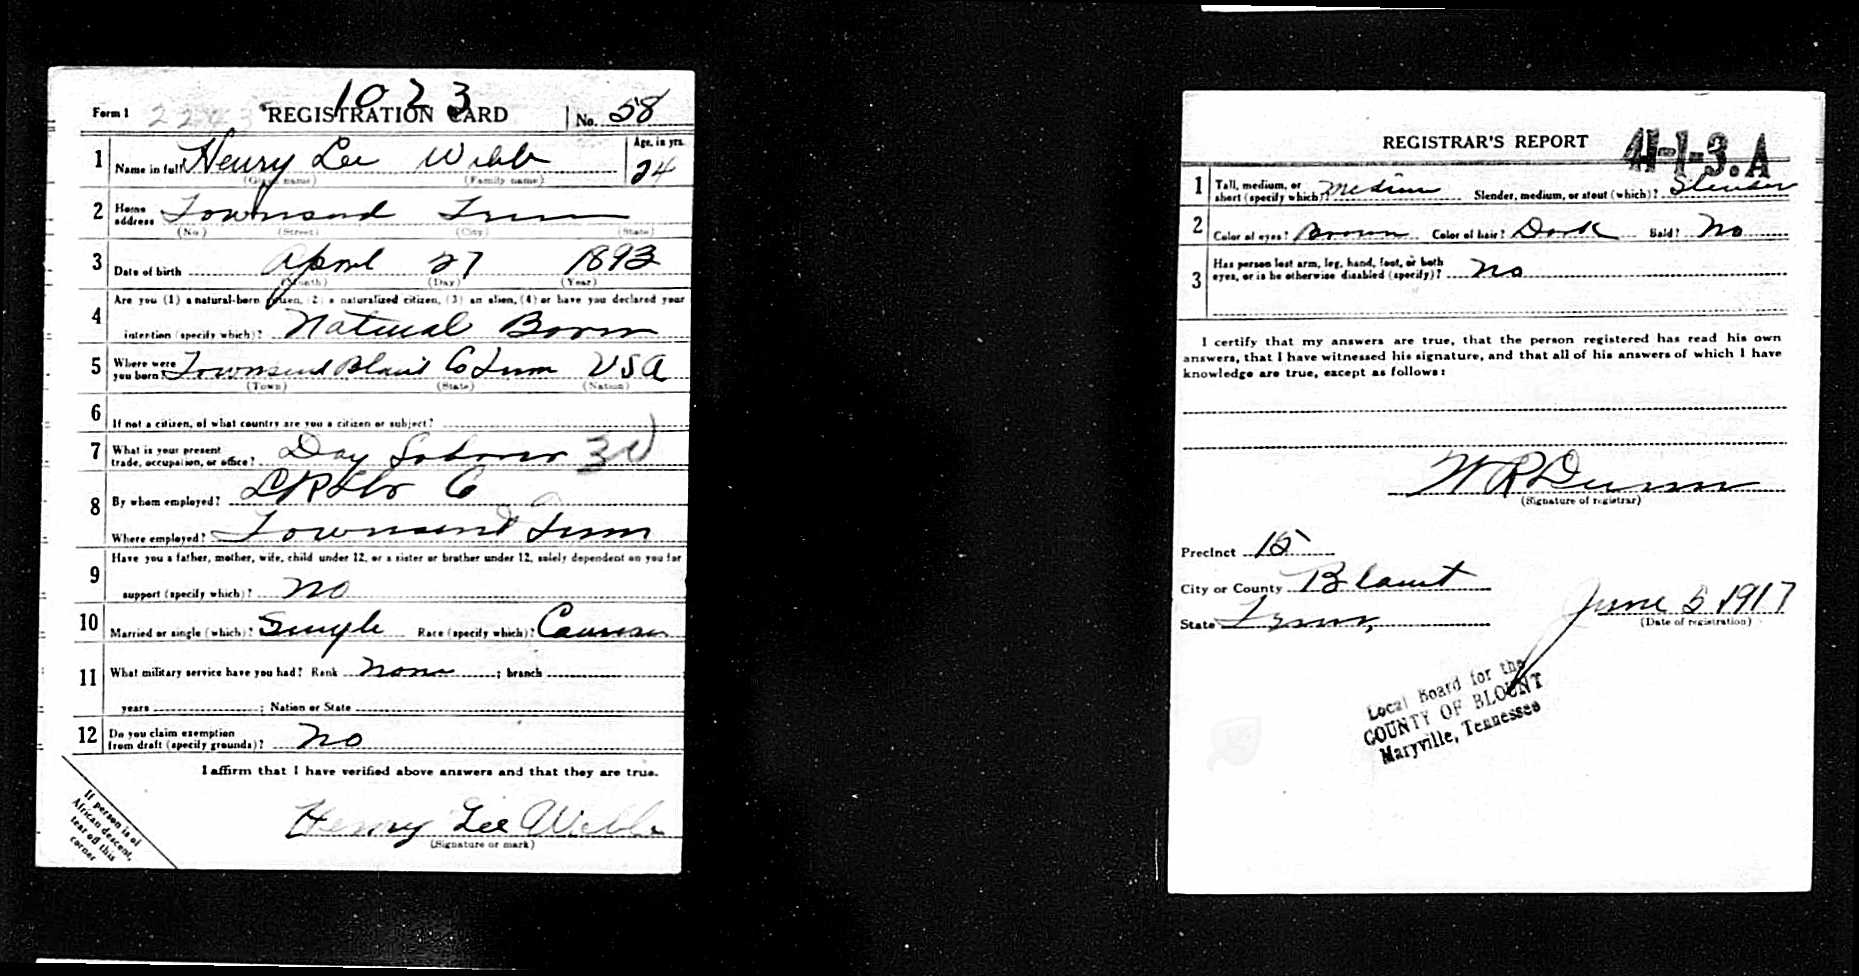 1023
Form 1 2243 REGISTRATION CARD No. 58
1 Name in full Henry Lee Webb Age, in yrs. 24
(Given name) (Family name)
2 Home address Townsend Tenn
(No.) (Street) (City) (State)
3 Date of birth April 27 1893
(Month) (Day) (Year)
4 Are you (1) a natural-born citizen, (2) a naturalized citizen, (3) an alien, (4) or have you declared your
intention (specify which)? Natural Born
5 Where were you born? Townsend Blount Co Tenn USA
(Town) (State) (Nation)
6 If not a citizen, of what country are you a citizen or subject?
7 What is your present trade, occupation, or office? Day Laborer
8 By whom employed? LRLbr Co
Where employed? Townsend Tenn
9 Have you a father, mother, wife, child under 12, or a sister or brother under 12, solely dependent on you for
support (specify which)? No
10 Married or single (which)? Single Race (specify which)?
11 What military service have you had? Rank None ; branch
years ; Nation or State
12 Do you claim exemption from draft (specify grounds)? No
I affirm that I have verified above answers and that they are true.
Henry Lee Webb
(Signature or mark)
If person is of
African descent,
tear off this
corner
REGISTRAR'S REPORT 41-1-3.A
1 Tall, medium, or short (specify which)? Medium Slender, medium, or stout (which)? Slender
2 Color of eyes? Brown Color of hair? Dark Bald? No
3 Has person lost arm, leg, hand, foot, or both
eyes, or is he otherwise disabled (specify)? No
I certify that my answers are true, that the person registered has read his own
answers, that I have witnessed his signature, and that all of his answers of which I have
knowledge are true, except as follows:
W R Dunn
(Signature of registrar)
Precinct 15
City or County Blount
State Tenn, June 5 1917
(Date of registration)
Local Board for the
COUNTY OF BLOUNT
Maryville, Tennessee